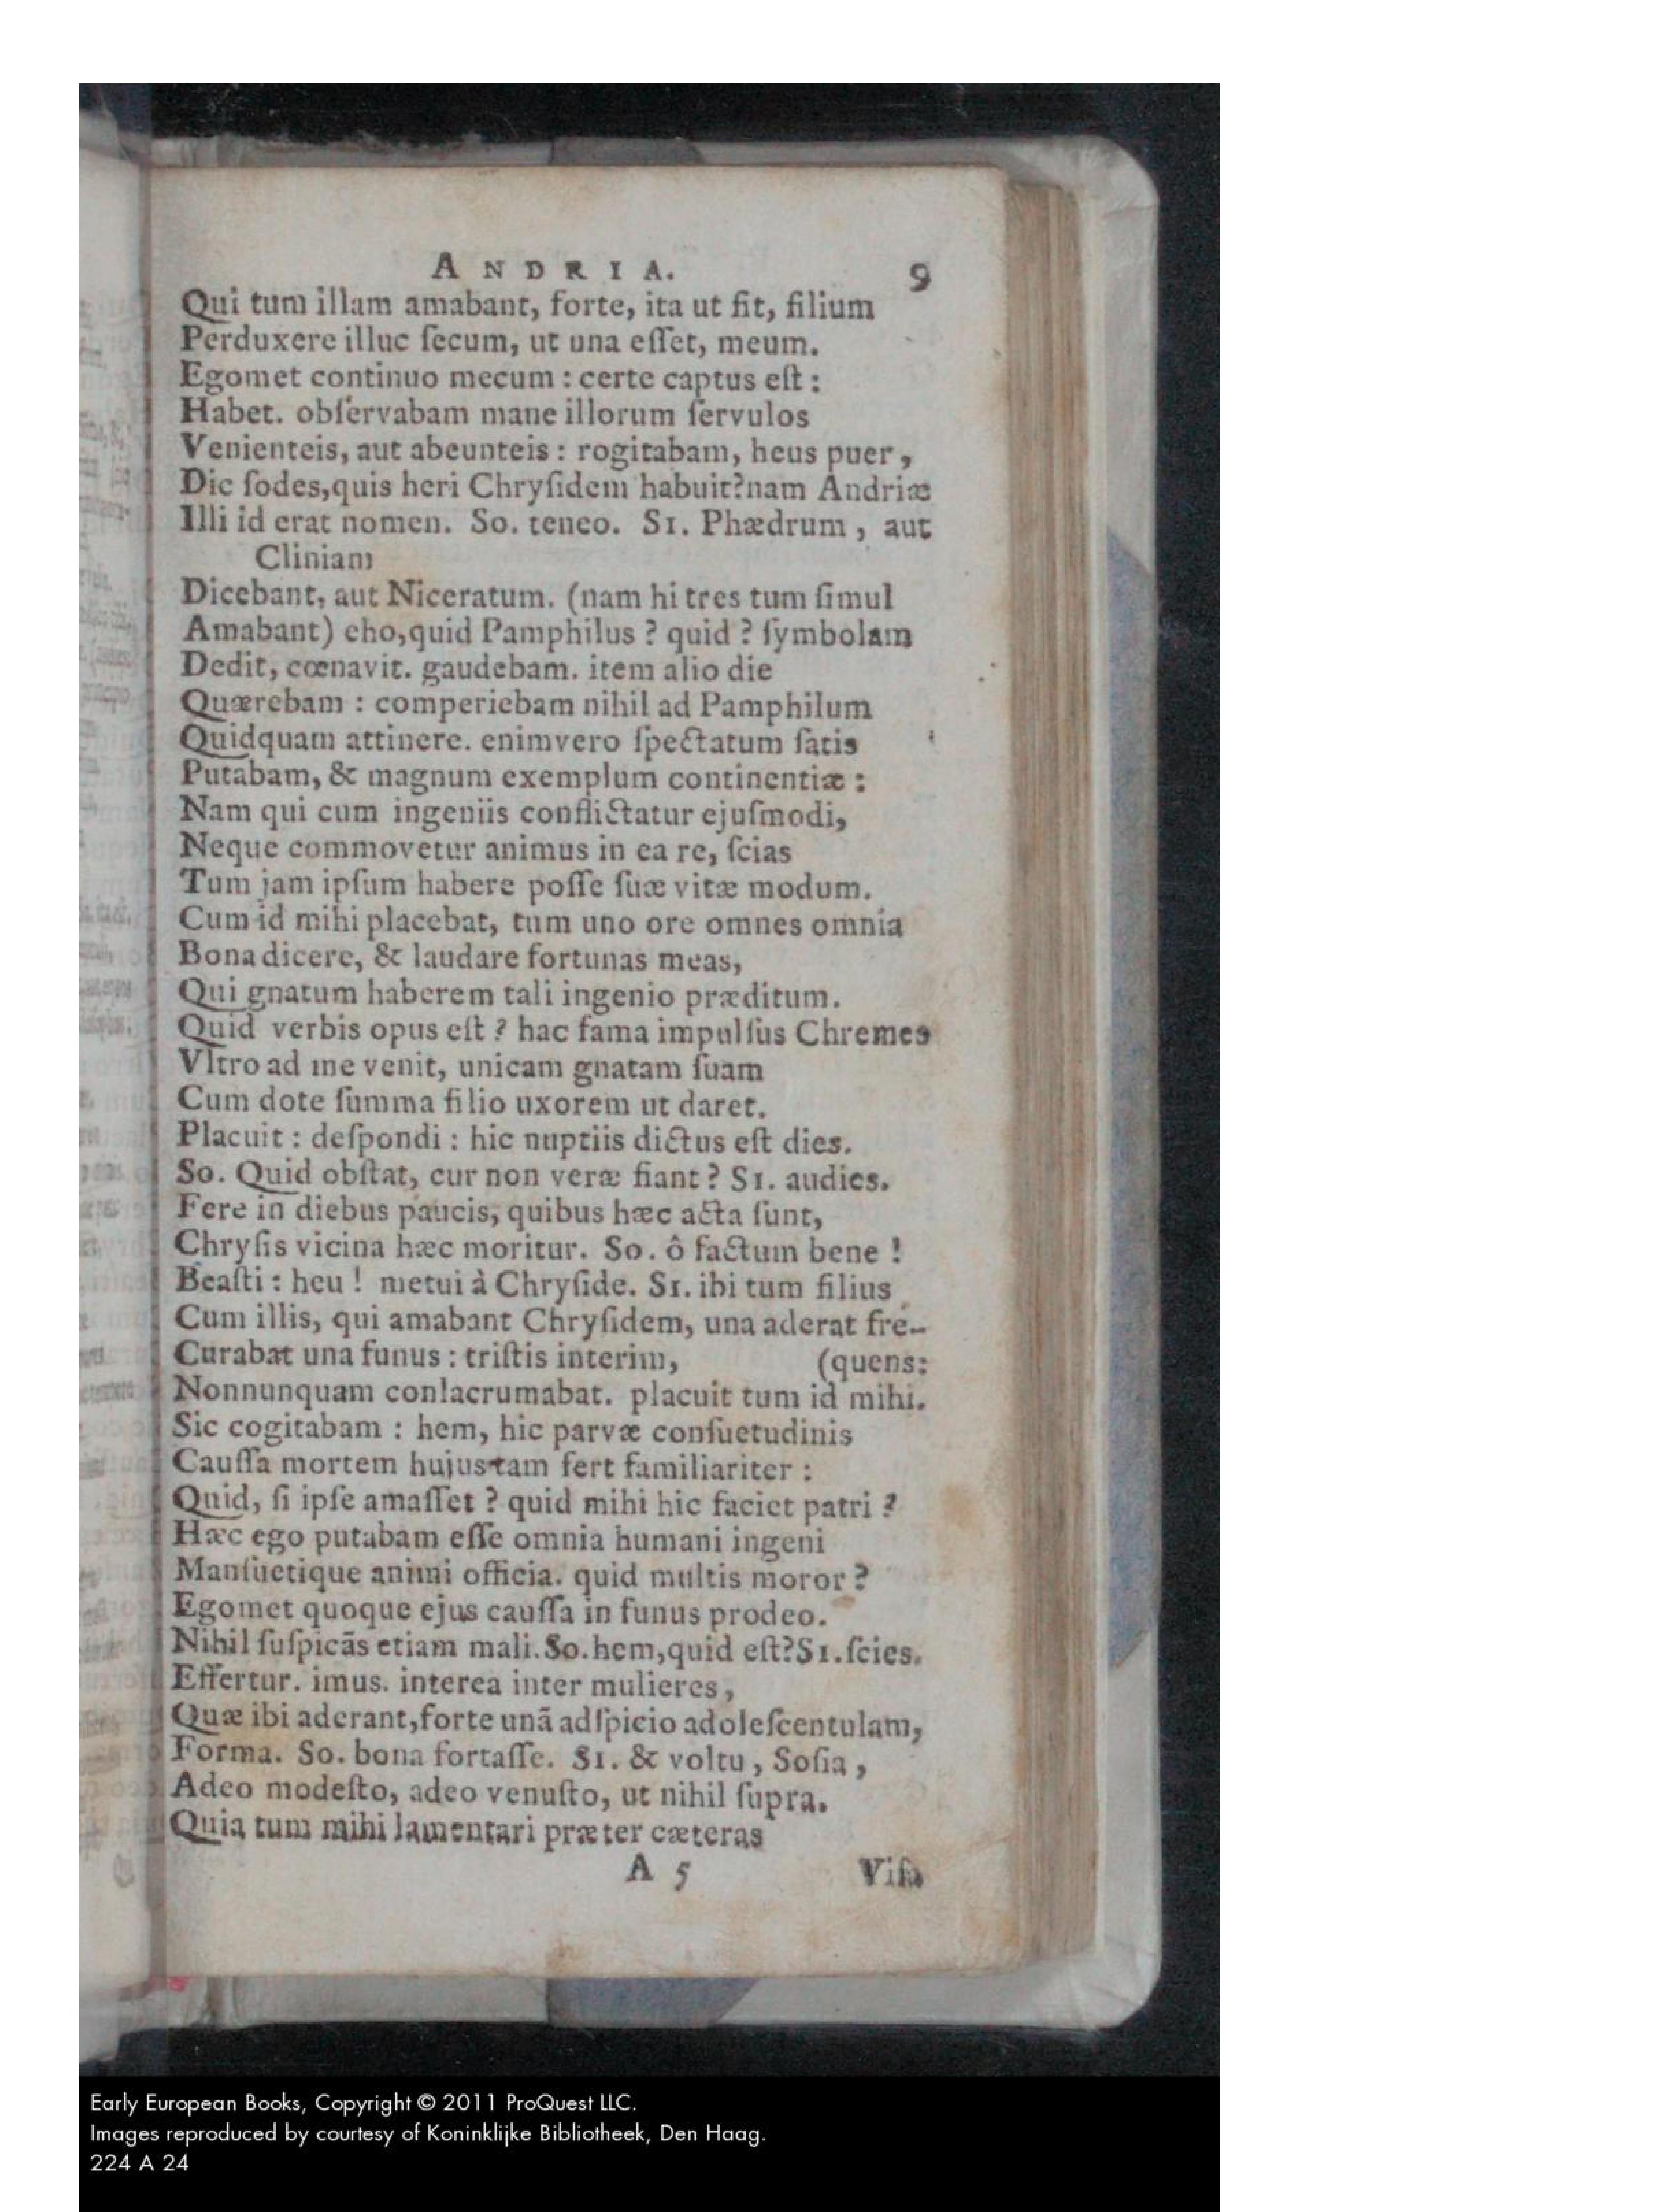 ANDRIA. 9
Qui tum illam amabant, forte, ita ut fit, filium
Perduxere illuc ſecum, ut una eſſet, meum.
Egomet continuo mecum : certe captus eſt :
Habet. obſervabam mane illorum ſervulos
Venienteis, aut abeunteis : rogitabam, heus puer,
Dic ſodes,quis heri Chryſidem habuit?nam Andriæ
Illi id erat nomen. So. teneo. SI. Phædrum, aut
Cliniam
Dicebant, aut Niceratum. (nam hi tres tum ſimul
Amabant) eho,quid Pamphilus ? quid ? ſymbolam
Dedit, cœnavit. gaudebam. item alio die
Quærebam : comperiebam nihil ad Pamphilum
Quidquam attinere. enimvero ſpectatum ſatis
Putabam, & magnum exemplum continentiæ :
Nam qui cum ingeniis conflictatur ejuſmodi,
Neque commovetur animus in ea re, ſcias
Tum jam ipſum habere poſſe ſuæ vitæ modum.
Cum id mihi placebat, tum uno ore omnes omnia
Bona dicere, & laudare fortunas meas,
Qui gnatum haberem tali ingenio præditum.
Quid verbis opus eſt ? hac fama impulſus Chremes
Vltro ad me venit, unicam gnatam ſuam
Cum dote ſumma filio uxorem ut daret.
Placuit : deſpondi : hic nuptiis dictus eſt dies.
So. Quid obſtat, cur non veræ fiant ? SI. audies.
Fere in diebus paucis, quibus hæc acta ſunt,
Chryſis vicina hæc moritur. So. ô factum bene !
Beaſti : heu ! metui à Chryſide. SI. ibi tum filius
Cum illis, qui amabant Chryſidem, una aderat fre-
Curabat una funus : triſtis interim, (quens:
Nonnunquam conlacrumabat. placuit tum id mihi.
Sic cogitabam : hem, hic parvæ conſuetudinis
Cauſſa mortem hujus tam fert familiariter :
Quid, ſi ipſe amaſſet ? quid mihi hic faciet patri ?
Hæc ego putabam eſſe omnia humani ingeni
Manſuetique animi officia. quid multis moror ?
Egomet quoque ejus cauſſa in funus prodeo.
Nihil ſuſpicãs etiam mali. So. hem,quid eſt?SI. ſcies.
Effertur. imus. interea inter mulieres,
Quæ ibi aderant,forte unã adſpicio adoleſcentulam,
Forma. So. bona fortaſſe. SI. & voltu, Soſia,
Adeo modeſto, adeo venuſto, ut nihil ſupra.
Quia tum mihi lamentari præter cæteras
A 5 Viſa
Early European Books, Copyright © 2011 ProQuest LLC.
Images reproduced by courtesy of Koninklijke Bibliotheek, Den Haag.
224 A 24